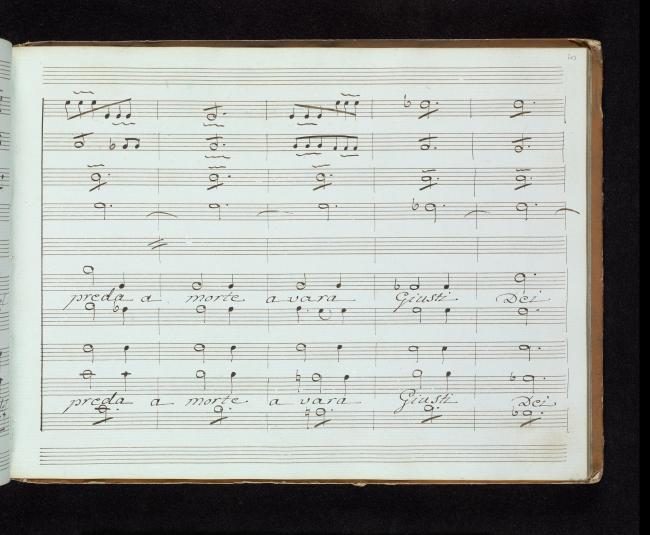 preda a morte a vara Giusti Dei
preda a morte a vara Giusti Dei